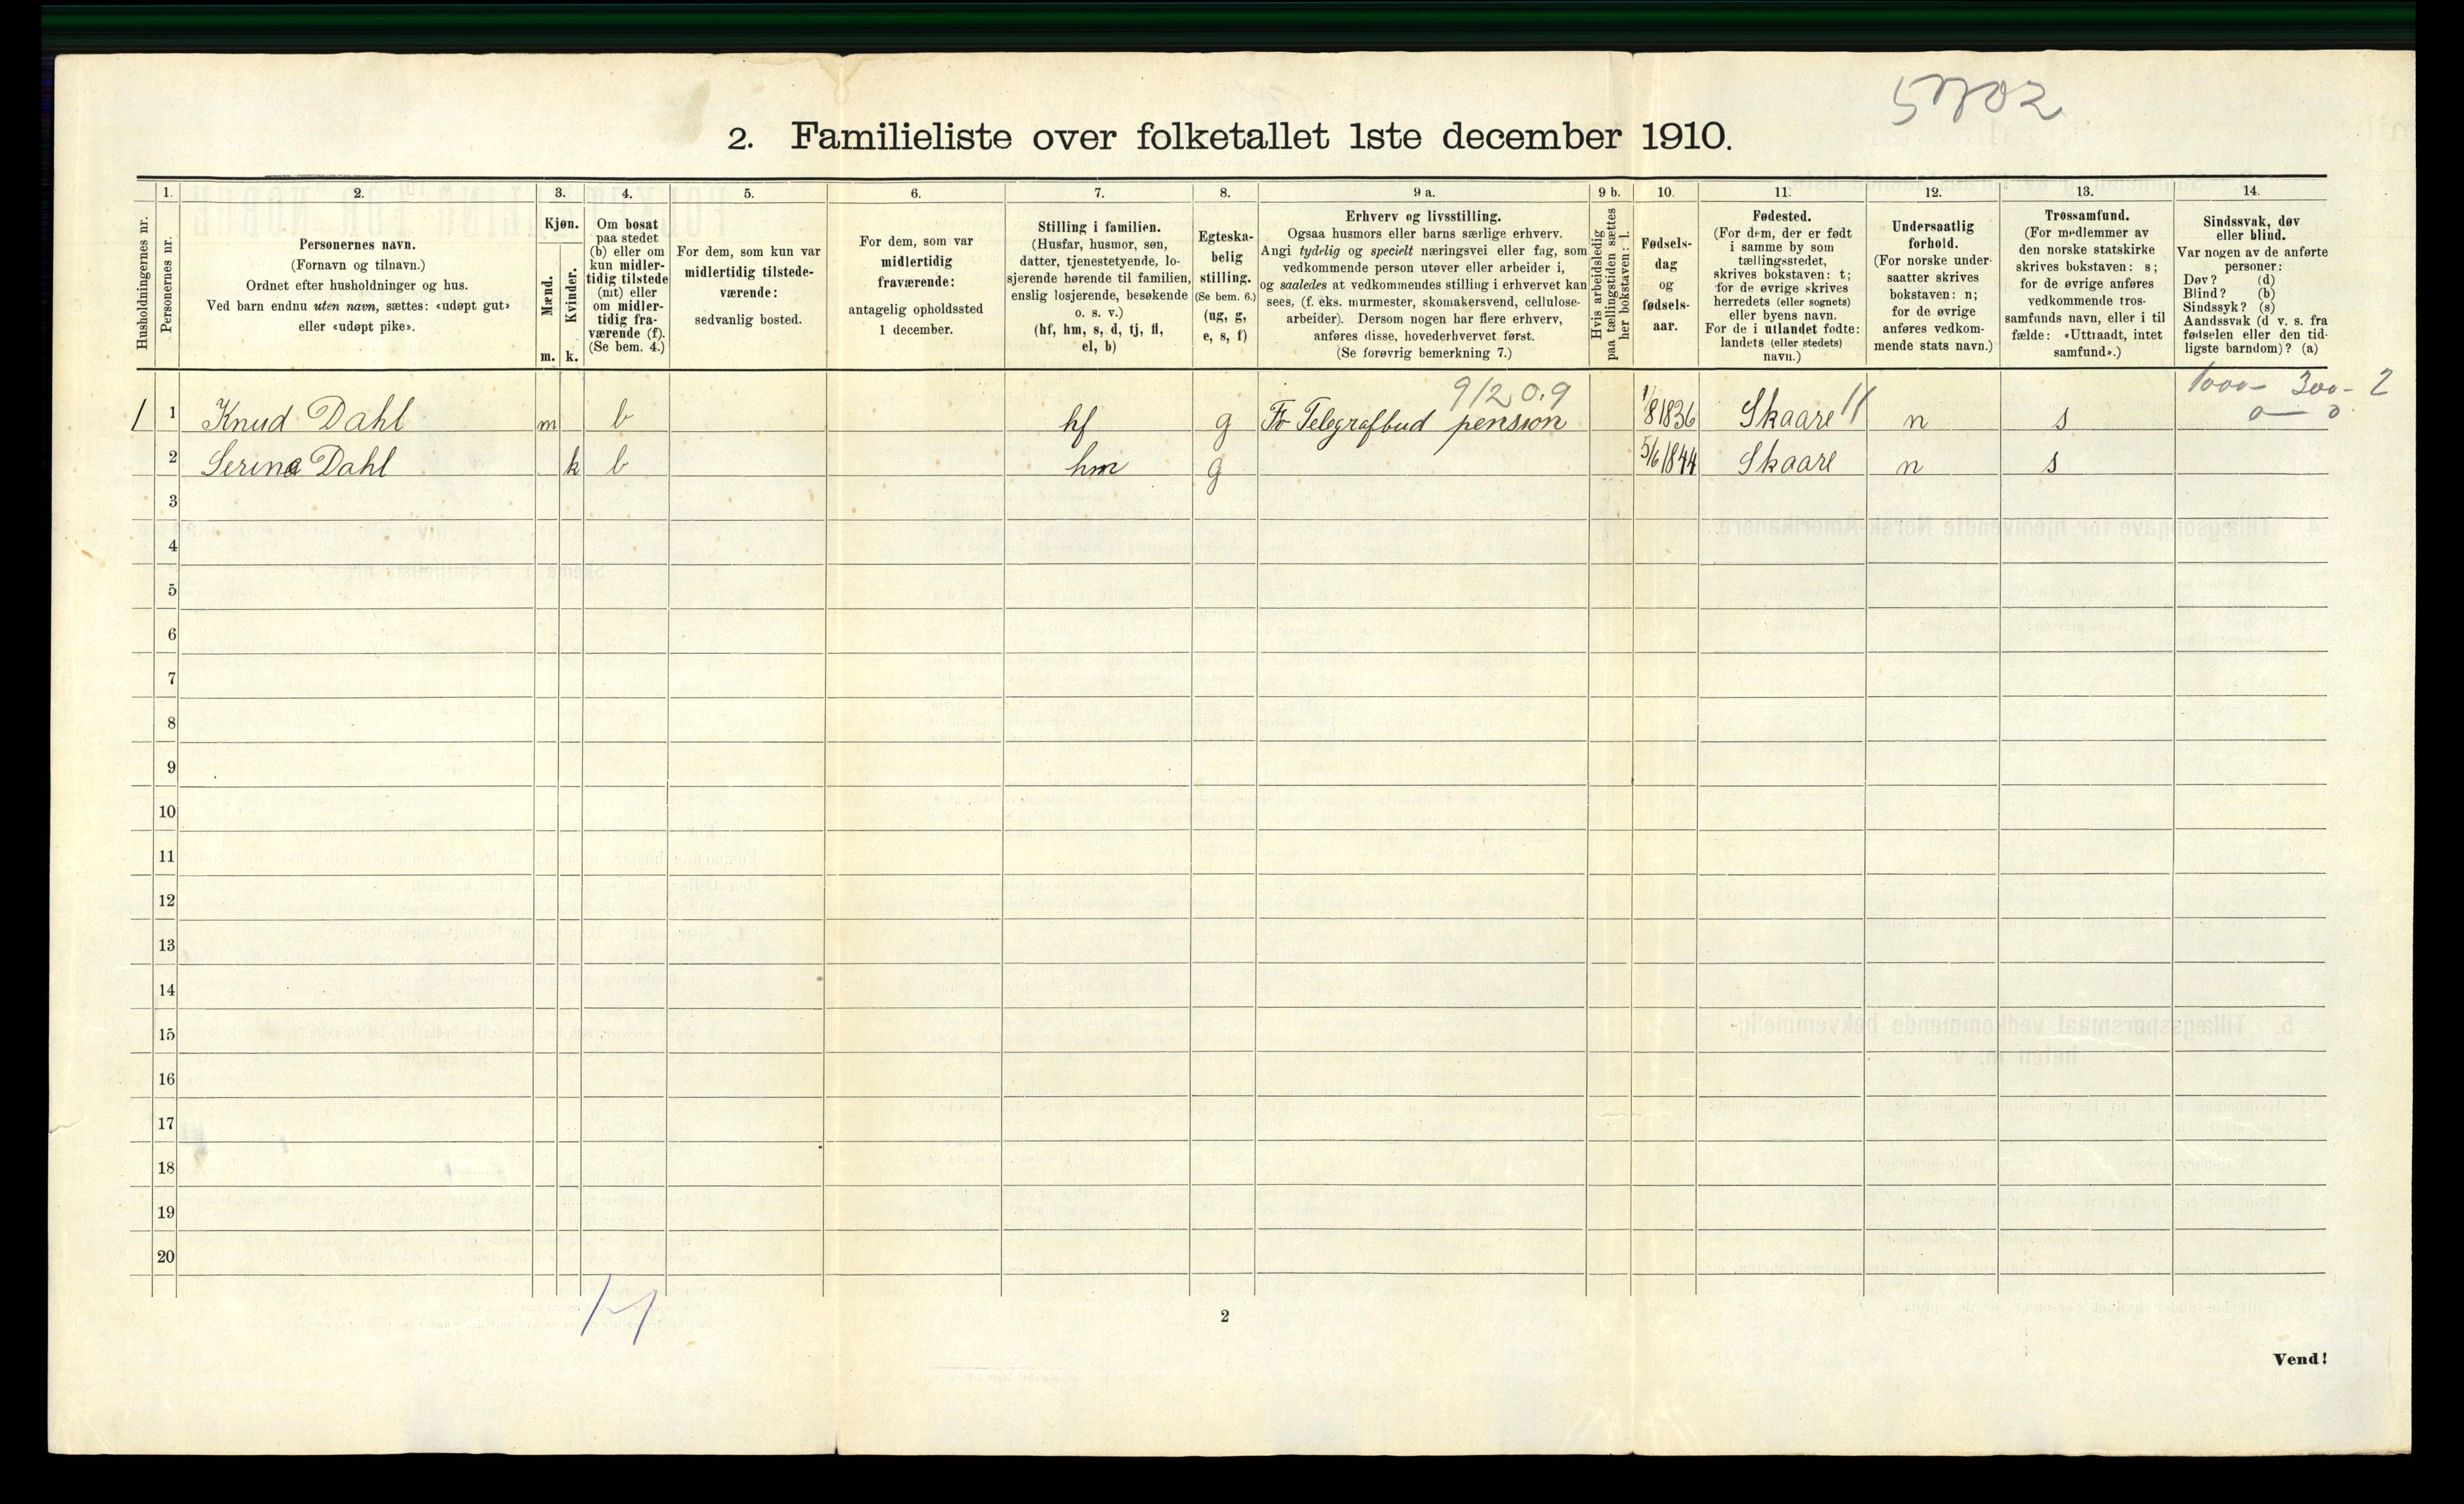 5702
2. Familieliste over folketallet 1ste december 1910.
Husholdningernes nr.
1.
Personernes nr.
2.
Personernes navn.
(Fornavn og tilnavn.)
Ordnet efter husholdninger og hus.
Ved barn endnu uten navn, sættes: «udøpt gut»
eller «udøpt pike».
3.
Kjøn.
Mænd.
m.
Kvinder.
k.
4.
Om bosat
paa stedet
(b) eller om
kun midler-
tidig tilstede
(mt) eller
om midler-
tidig fra-
værende (f).
(Se bem. 4.)
5.
For dem, som kun var
midlertidig tilstede-
værende:
sedvanlig bosted.
6.
For dem, som var
midlertidig
fraværende:
antagelig opholdssted
1 december.
7.
Stilling i familien.
(Husfar, husmor, søn,
datter, tjenestetyende, lo-
sjerende hørende til familien,
enslig losjerende, besøkende
o. s. v.)
(hf, hm, s, d, tj, fl,
el, b)
8.
Egteska-
belig
stilling.
(Se bem. 6.)
(ug, g,
e, s, f)
9 a.
Erhverv og livsstilling.
Ogsaa husmors eller barns særlige erhverv.
Angi tydelig og specielt næringsvei eller fag, som
vedkommende person utøver eller arbeider i,
og saaledes at vedkommendes stilling i erhvervet kan
sees, (f. eks. murmester, skomakersvend, cellulose-
arbeider). Dersom nogen har flere erhverv,
anføres disse, hovederhvervet først.
(Se forøvrig bemerkning 7.)
9 b.
Hvis arbeidsledig
paa tællingstiden sættes
her bokstaven: l.
10.
Fødsels-
dag
og
fødsels-
aar.
11.
Fødested.
(For dem, der er født
i samme by som
tællingsstedet,
skrives bokstaven: t;
for de øvrige skrives
herredets (eller sognets)
eller byens navn.
For de i utlandet fødte:
landets (eller stedets)
navn.)
12.
Undersaatlig
forhold.
(For norske under-
saatter skrives
bokstaven: n;
for de øvrige
anføres vedkom-
mende stats navn.)
13.
Trossamfund.
(For medlemmer av
den norske statskirke
skrives bokstaven: s;
for de øvrige anføres
vedkommende tros-
samfunds navn, eller i til
fælde: «Uttraadt, intet
samfund».)
14.
Sindssvak, døv
eller blind.
Var nogen av de anførte
personer:
Døv? (d)
Blind? (b)
Sindssyk? (s)
Aandssvak (d v. s. fra
fødselen eller den tid-
ligste barndom)? (a)
91209 1000 - 300 - 2
0 — 0
1 1 Knud Dahl m b hf g Fr Telegrafbud pension 1/8 1836 Skaare 11 n s
2 Serine Dahl k b hm g 5/6 1844 Skaare n s
3
4
5
6
7
8
9
10
11
12
13
14
15
16
17
18
19
20
1-1
2
Vend!